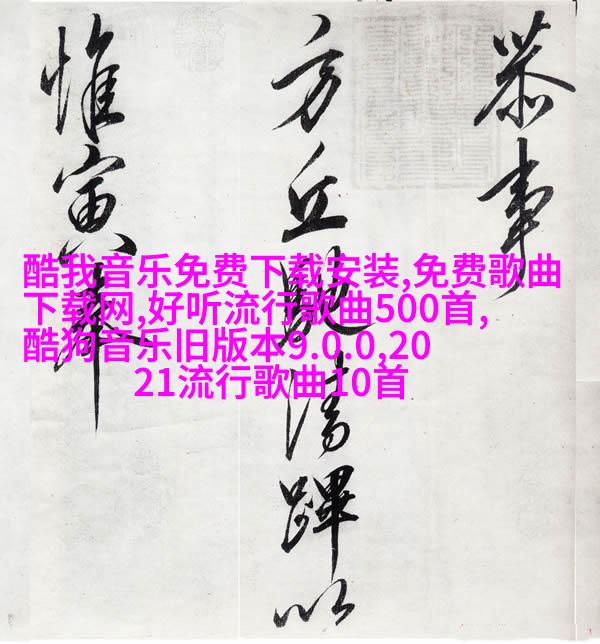 恭事
方丘清蹕以
惟寅
酷我音乐免费下载安装,免费歌曲
下载网,好听流行歌曲500首,
酷狗音乐旧版本9.0.0,20
21流行歌曲10首